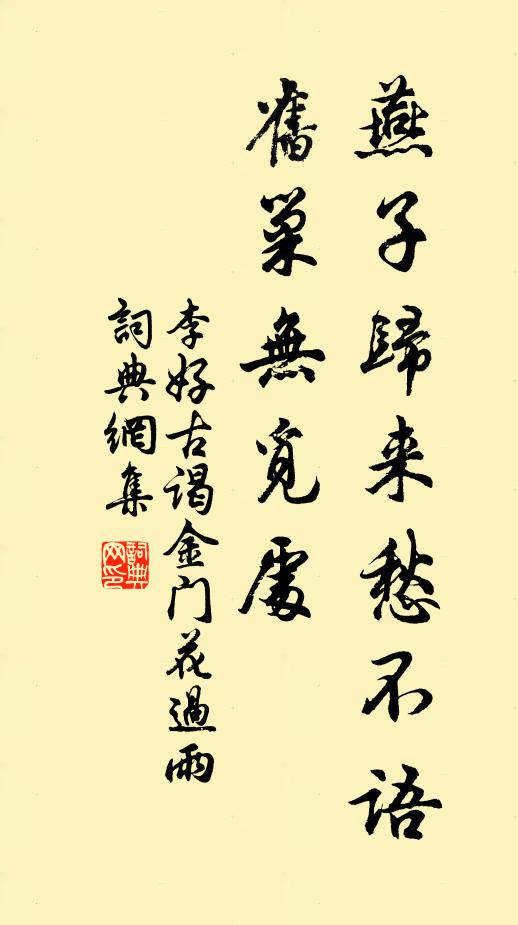 燕子歸来愁不語
舊巢無覓處
李好古谒金门花過雨
詞典網集
詞典網印